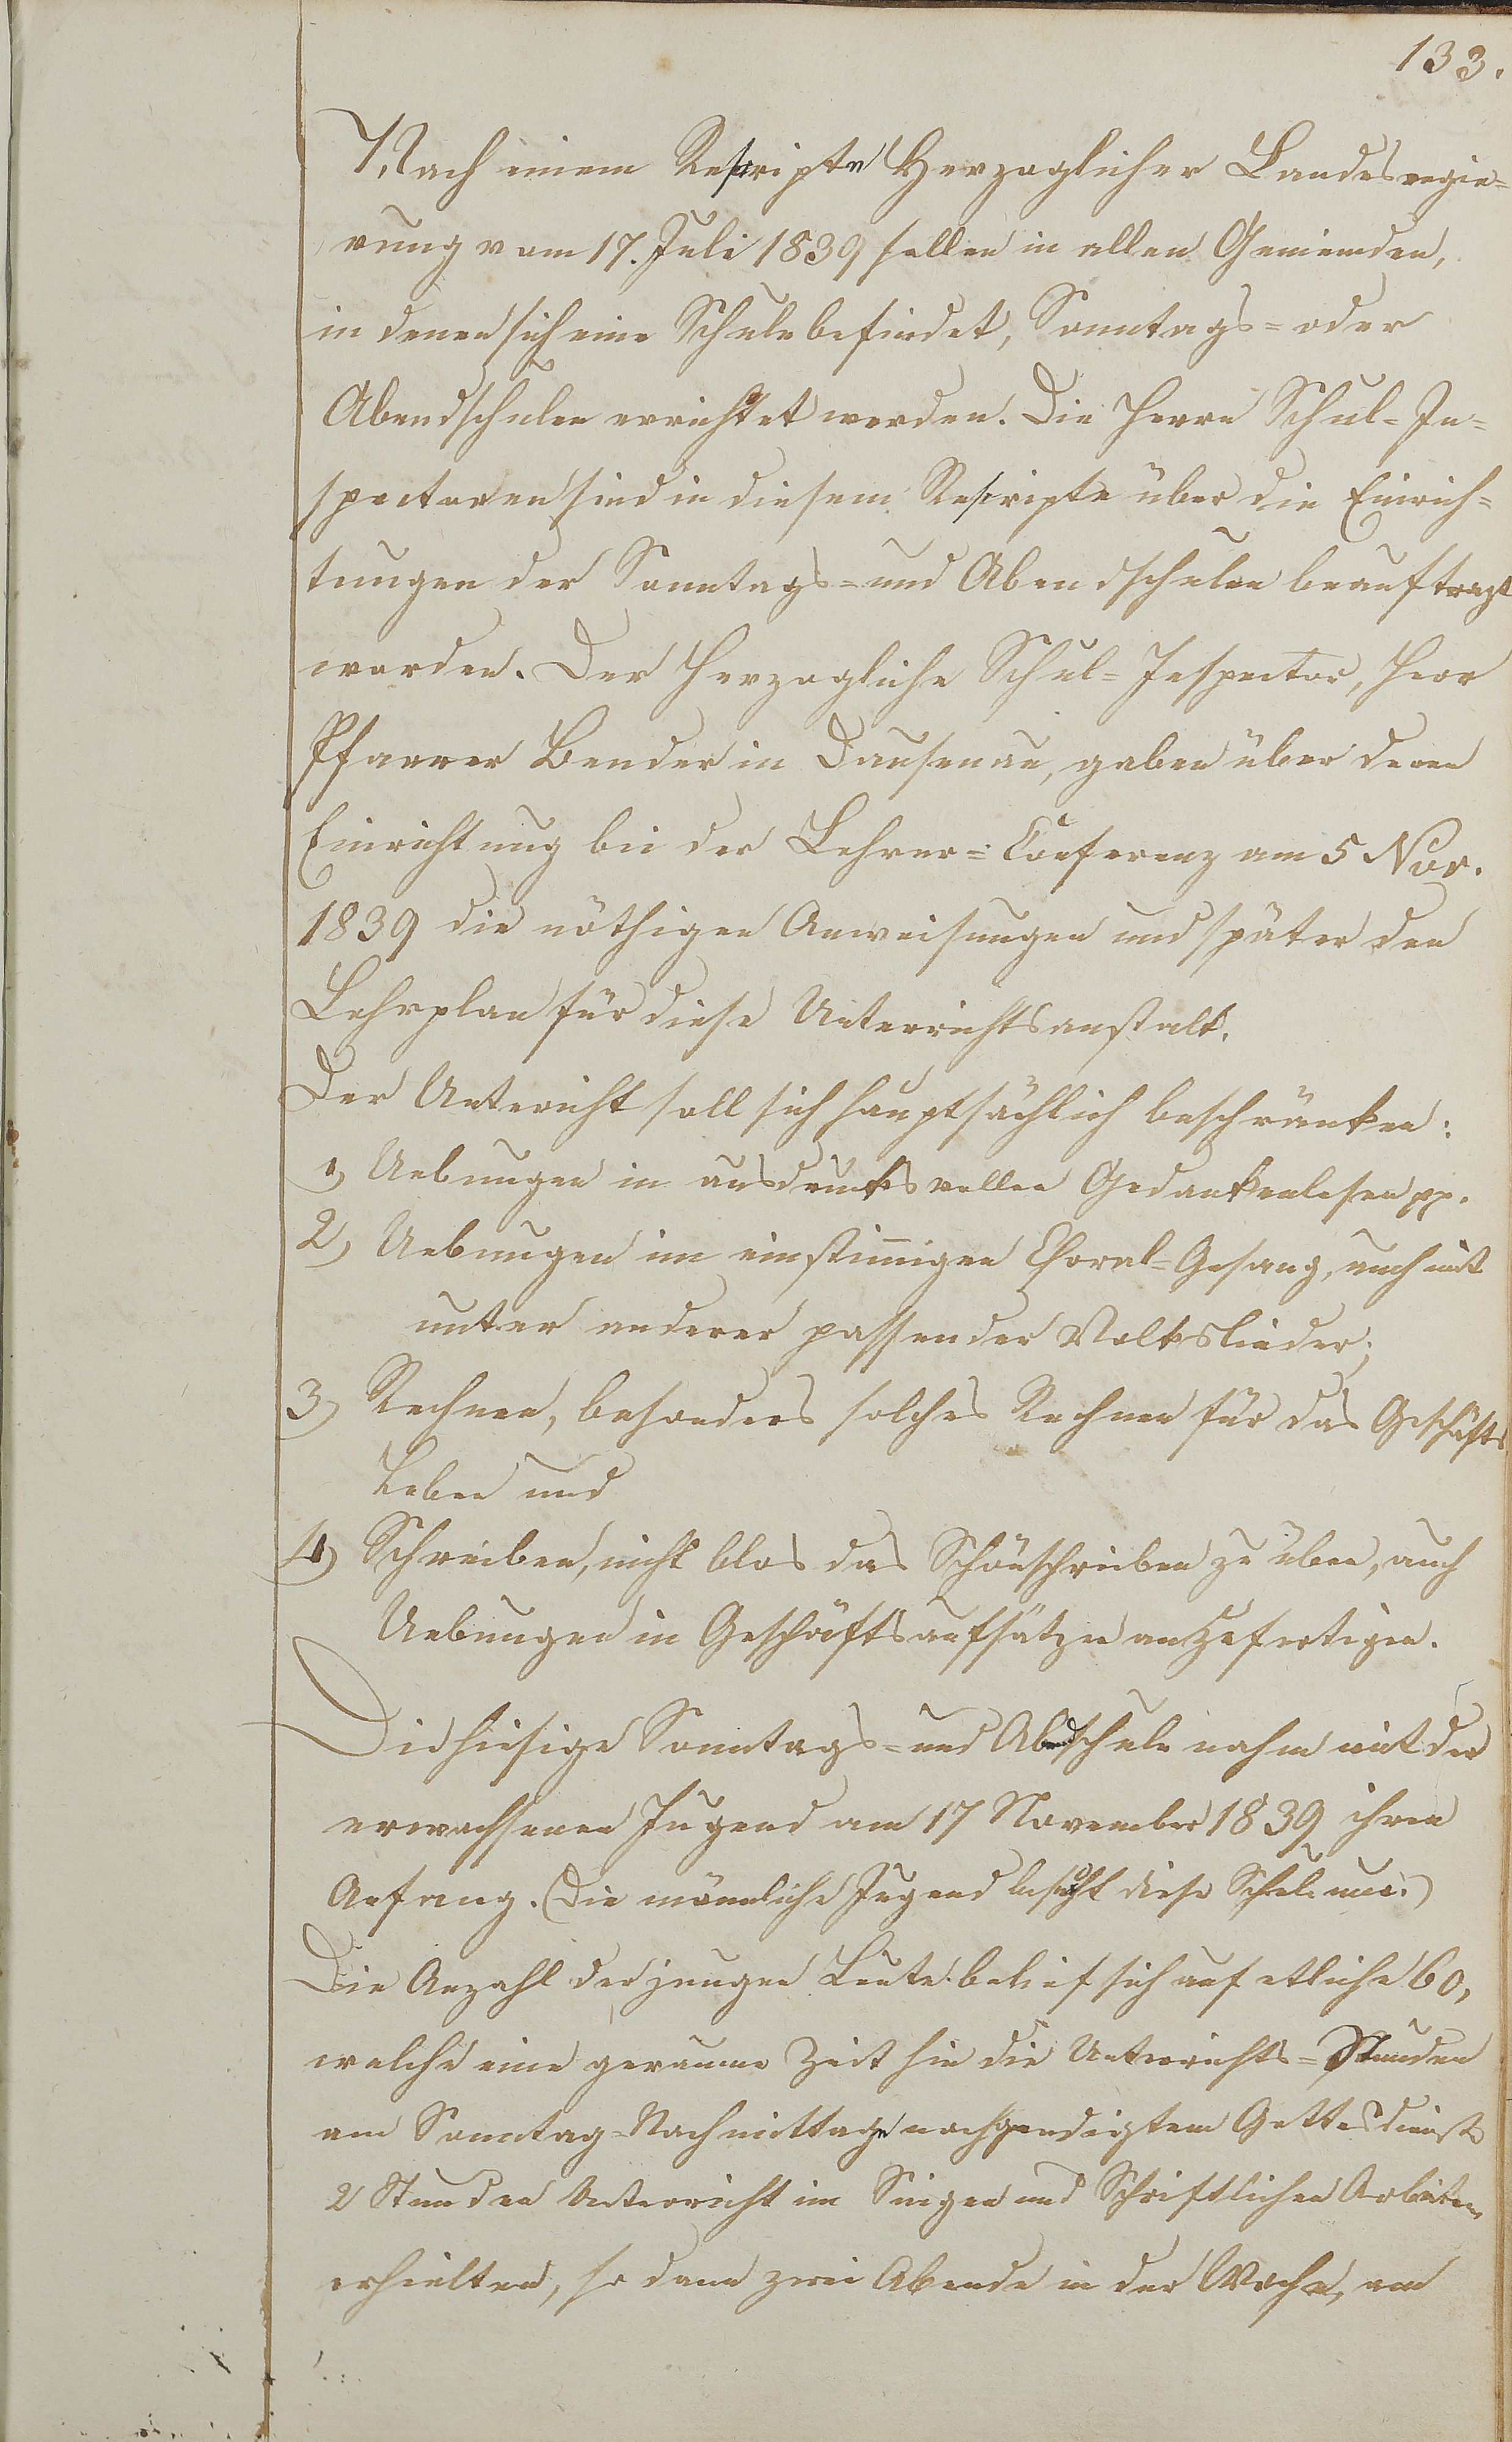 133.
Nach einem Rescripte Herzoglicher Landesregie=
rung vom 17. Juli 1839 sollen in allen Gemeinden,
in denen sich eine Schule befindet, Sonntags= oder
Abendschulen errichtet werden. Die Herrn Schul=In=
spectoren sind in diesem Rescripte über die Einrich=
tungen der Sonntags= und Abendschulen beauftragt
worden. Der Herzogliche Schul=Inspector, Herr
Pfarrer Bender in Dausenau, gaben über deren
Einrichtung bei der Lehrer=Conferenz am 5 Nov.
1839 die nöthigen Anweisungen und später den
Lehrplan für diese Unterrichtsanstalt.
Der Untericht soll sich hauptsächlich beschränken:
1) Uebungen in ausdrucksvollen Gedankenlesen pp.
2) Uebungen im einstimigen Choral=Gesang, auch mit
unter anderer passender Volkslieder;
3) Rechnen, besonders solches Rechnen für das Geschäfts
Leben und
4) Schreiben, nicht blos das Schönschreiben zu üben, auch
Uebungen in Geschäftsaufsätzen anzufertigen.
Die hiesige Sonntags= und Abendschule nahm mit der
erwachsenen Jugend am 17 November 1839 ihren
Anfang. (Die männliche Jugend besucht diese Schule nur.)
Die Anzahl der jungen Leute belief sich auf etliche 60,
welche eine geraume Zeit hin die Unterrichts=Stunden
am Sonntag=Nachmittage nach geendigtem Gottesdienst
2 Stunden Unterricht im Singen und Schriftlichen Arbeiten
erhielten, so dann zwei Abende in der Woche, am